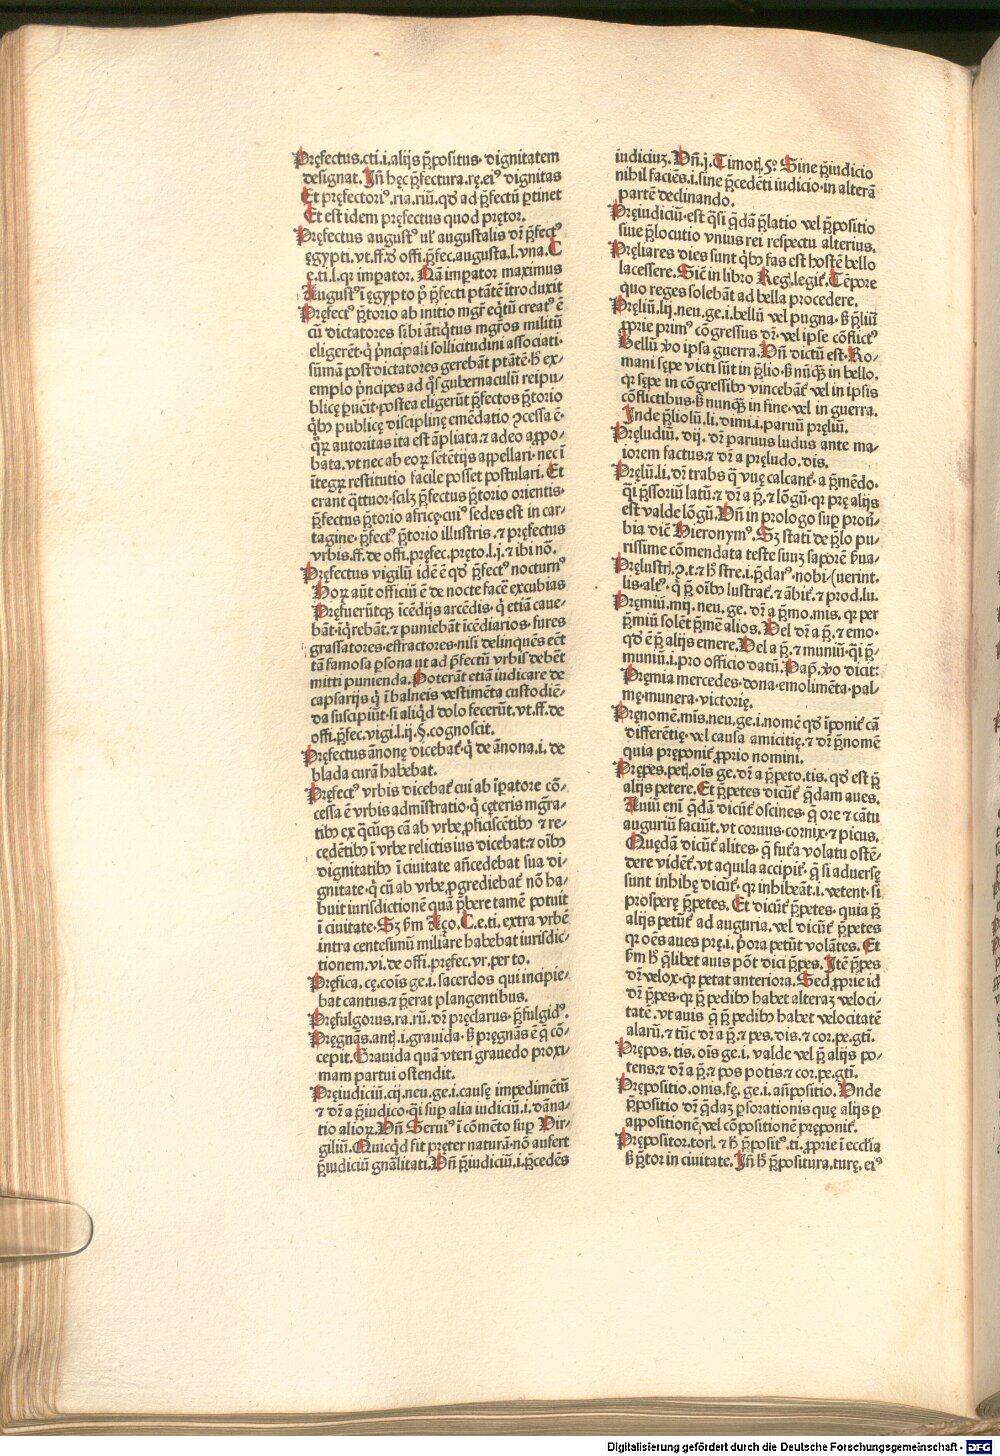 Pręfectus.cti.i.alijs p̄positus· dignitatem
designat. Iñ hęc p̄fectura.rę.eiꝰ dignitas
Et pręfectoriꝰ.ria.riū.qď ad p̄fectū ꝑtinet
Et est idem pręfectus quod pretor.
Pręfectus augustꝰ ul̓ augustalis dr̄ p̄fectꝰ
ęgypti.vt.ff.ď offi.p̄fec.augusta.l.vna.C
e.ti.l.qr imꝑator. Nā imꝑator maximus
Augustꝰ ī ęgypto ꝓ̄ p̄fecti ptātē ītroduxit
Pręfectꝰ p̄torio ab initio mgr̄ eq̄tū creatꝰ ē
cū dictatores sibi ātiq̇tus mgr̄os militū
eligerēt·q̇ p̄ncipali sollicitudini associati·
sūmā post dictatores gerebāt ptātē·h̄ ex/
emplo p̄ncipes ad q̇s gubernaculū reipu/
blicę ꝑuēit·postea eligerūt p̄fectos p̄torio
q̇bꝫ publicę disciplinę emēdatio ꝯcessa ē·
q̇ꝝ autoritas ita est āpliata.⁊ adeo aꝓpo/
bata.vt nec ab eoꝝ sētētijs appellari·nec ī
ītegꝝ restitutio facile posset postulari. Et
erant q̇ttuor·scilꝫ p̄fectus p̄torio orientis·
p̄fectus p̄torio africę·cuiꝰ sedes est in car/
tagine·p̄fectꝰ p̄torio illustris.⁊ pręfectus
vrbis.ff.de offi.pręfec.pręto.l.j.⁊ ibi nō.
Pręfectus vigilū idē ē qď p̄fectꝰ nocturnꝰ
Hoꝝ aūt officiū ē de nocte facē excubias
Pręfuerūtqꝫ īcēdijs arcēdis·q̇ etiā caue/
bāt·iq̇rebāt.⁊ puniebāt īcēdiarios·fures
grassatores·effractores·nisi delinquēs eēt
tā famosa ꝑsona ut ad p̄fectū vrbis debēt
mitti punienda. Poterāt etiā iudicare de
capsarijs q̇ ī balneis vestimēta custodiē/
da suscipiūt·si aliq̇d dolo fecerūt.vt.ff.de
offi.p̄fec.vigi.l.ij.§.cognoscit.
Pręfectus ānonę dicebat̄·q̇ de ānona.i.de
blada curā habebat.
Pręfectꝰ vrbis dicebat̄ cui ab īꝑatore cō/
cessa ē vrbis admīstratio·q̇ cęteris mḡra/
tibꝫ ex q̄cūqꝫ cā ab vrbe ꝓficiscētibꝫ ⁊ re/
cędētibꝫ ī vrbe relictis ius dicebat.⁊ oībꝫ
dignitatibꝫ ī ciuitate añcedebat sua di/
gnitate·q̇ cū ab vrbe ꝓgrediebat̄ nō ha/
buit iurisdictionē quā p̄bere tamē potuit
ī ciuitate·Sꝫ ẜm Aço.C.e.ti.extra vrbē
intra centesimū miliāre habebat iurisdic/
tionem.vi.de offi.pręfec.vr.per to.
Pręfica.cę.cōis ge.i.sacerdos qui incipie/
bat cantus.⁊ p̄erat plangentibus.
Pręfulgorus.ra.rū.dr̄ pręclarus·p̄fulgidꝰ.
Pręgnās.antꝭ.i.grauida·ꝫ pręgnās ē q̄ cō/
cepit. Grauida quā vteri grauedo proxi/
mam partui ostendit.
Pręiudiciū.cij.neu.ge.i.causę impedimētū
⁊ dr̄ a p̄iudico·qi suꝑ alia iudiciū.i.dāna/
tio alioꝝ. Vñ Seruiꝰ ī cōmēto suꝑ Vir/
giliū. Quicq̇d fit preter naturā·nō aufert
p̄iudiciū gnālitati. Vñ p̄iudiciū.i.p̄cedēs
iudiciuꝫ. Vñ.j. Timotꝭ.5º Sine p̄iudicio
nihil faciēs.i.sine p̄cedēti iudicio·in alterā
partē declinando.
Pręiudiciū·est q̄si q̄dā p̄latio vel p̄positio
siue p̄locutio vnius rei respectu alterius.
Pręliares dies sunt q̇bꝫ fas est hostē bello
lacessere. Sic̄ in libro Reg.legit̄. Tēpore
quo reges solebāt ad bella procedere.
Pręliū.lij.neu.ge.i.bellū vel pugna·ꝫ p̄liū
ꝓprie primꝰ cōgressus dr̄·vel ipse cōflictꝰ
Bellū ꝟo ipsa guerra. Vñ dictū est·Ro/
mani sępe victi sūt in p̄lio·ꝫ nūq̄ꝫ in bello.
qr sępe in cōgressibꝫ vincebāt̄ vel in ipsis
cōflictibus·ꝫ nunq̄ꝫ in fine·vel in guerra.
Inde p̄liolū.li.dimi.i.paruū pręliū.
Pręludiū.dij.dr̄ paruus ludus ante ma/
iorem factus.⁊ dr̄ a pręludo.dis.
Pręlū.li.dr̄ trabs q̄ vuę calcant̄·a p̄mēdo·
qi p̄ssoriū latū.⁊ dr̄ a p̄.⁊ lōgū·qr prę alijs
est valde lōgū. Vñ in prologo suꝑ prouɐ̄/
bia dic̄ Hieronymꝰ. Sꝫ stati de p̄lo pu/
rissime cōmendata teste suuꝫ saporē ẜua/
Pręlustrꝭ.ꝯ.t.⁊ h̄ stre.i.p̄darꝰ·nobi·(uerint.
lis·altꝰ·q̇ p̄ oībꝫ lustrat̄.⁊ ābit̄.⁊ prod.lu.
Pręmiū.mij.neu.ge.dr̄ a p̄mo.mis.qr per
p̄miū solēt p̄mē alios. Vel dr̄ a p̄.⁊ emo·
qď ē p̄ alijs emere. Vel a p̄.⁊ muniū·qi p̄/
muniū.i.pro officio datū. Pap̄.ꝟo dicit:
Pręmia mercedes·dona·emolimēta·pal/
mę·munera·victorię.
Pręnomē.mis.neu.ge.i.nomē qď īponit̄ cā
differētię·vel causa amicitię.⁊ dr̄ p̄nomē
quia pręponit̄ ꝓprio nomini.
Prępes.petꝭ.oīs ge.dr̄ a p̄peto.tis.qď est p̄
alijs petere. Et p̄petes dicūt̄ q̄dam aues.
Auiū eni q̄dā dicūt̄ oscines·q̄ ore ⁊ cātu
auguriū faciūt.vt coruus·cornix·⁊ picus.
Quędā dicūt̄ alites·q̄ fut̄a volatu ostē/
dere vident̄.vt aquila accipit̄·q̄ si aduersę
sunt inhibę dicūt̄·qr inhibeāt.i.vetent·si
prosperę p̄petes. Et dicūt̄ p̄petes·quia p̄
alijs petūt̄ ad auguria.vel dicūt̄ p̄petes
qr oēs aues prę.i.p̄ora petūt volātes. Et
ẜm h̄ q̄libet auis pōt dici p̄pes. Itē p̄pes
dr̄ velox·qr petat anteriora. Sed ꝓprie id
dr̄ p̄pes·qr p̄ pedibꝫ habet alteraꝫ veloci/
tatē.vt auis q̄ p̄ pedibꝫ habet velocitatē
alarū.⁊ tūc dr̄ a p̄.⁊ pes.dis.⁊ cor.pe.gtī.
Prępos.tis.oīs ge.i.valde vel p̄ alijs po/
tens.⁊ dr̄ a p̄.⁊ pos potis.⁊ cor.pe.gtī.
Prępositio.onis.fę.ge.i.añpositio. Vnde
p̄positio dr̄ q̄daꝫ ꝑs orationis quę alijs ꝑ
appositionē·vel cōpositionē pręponit̄.
Prępositor.torꝭ.⁊ h̄ p̄positꝰ.ti.ꝓprie ī ecclīa
ꝫ p̄tor in ciuitate. Iñ h̄ p̄positura.turę.eiꝰ
Digitalisierung gefördert durch die Deutsche Forschungsgemeinschaft - DFG